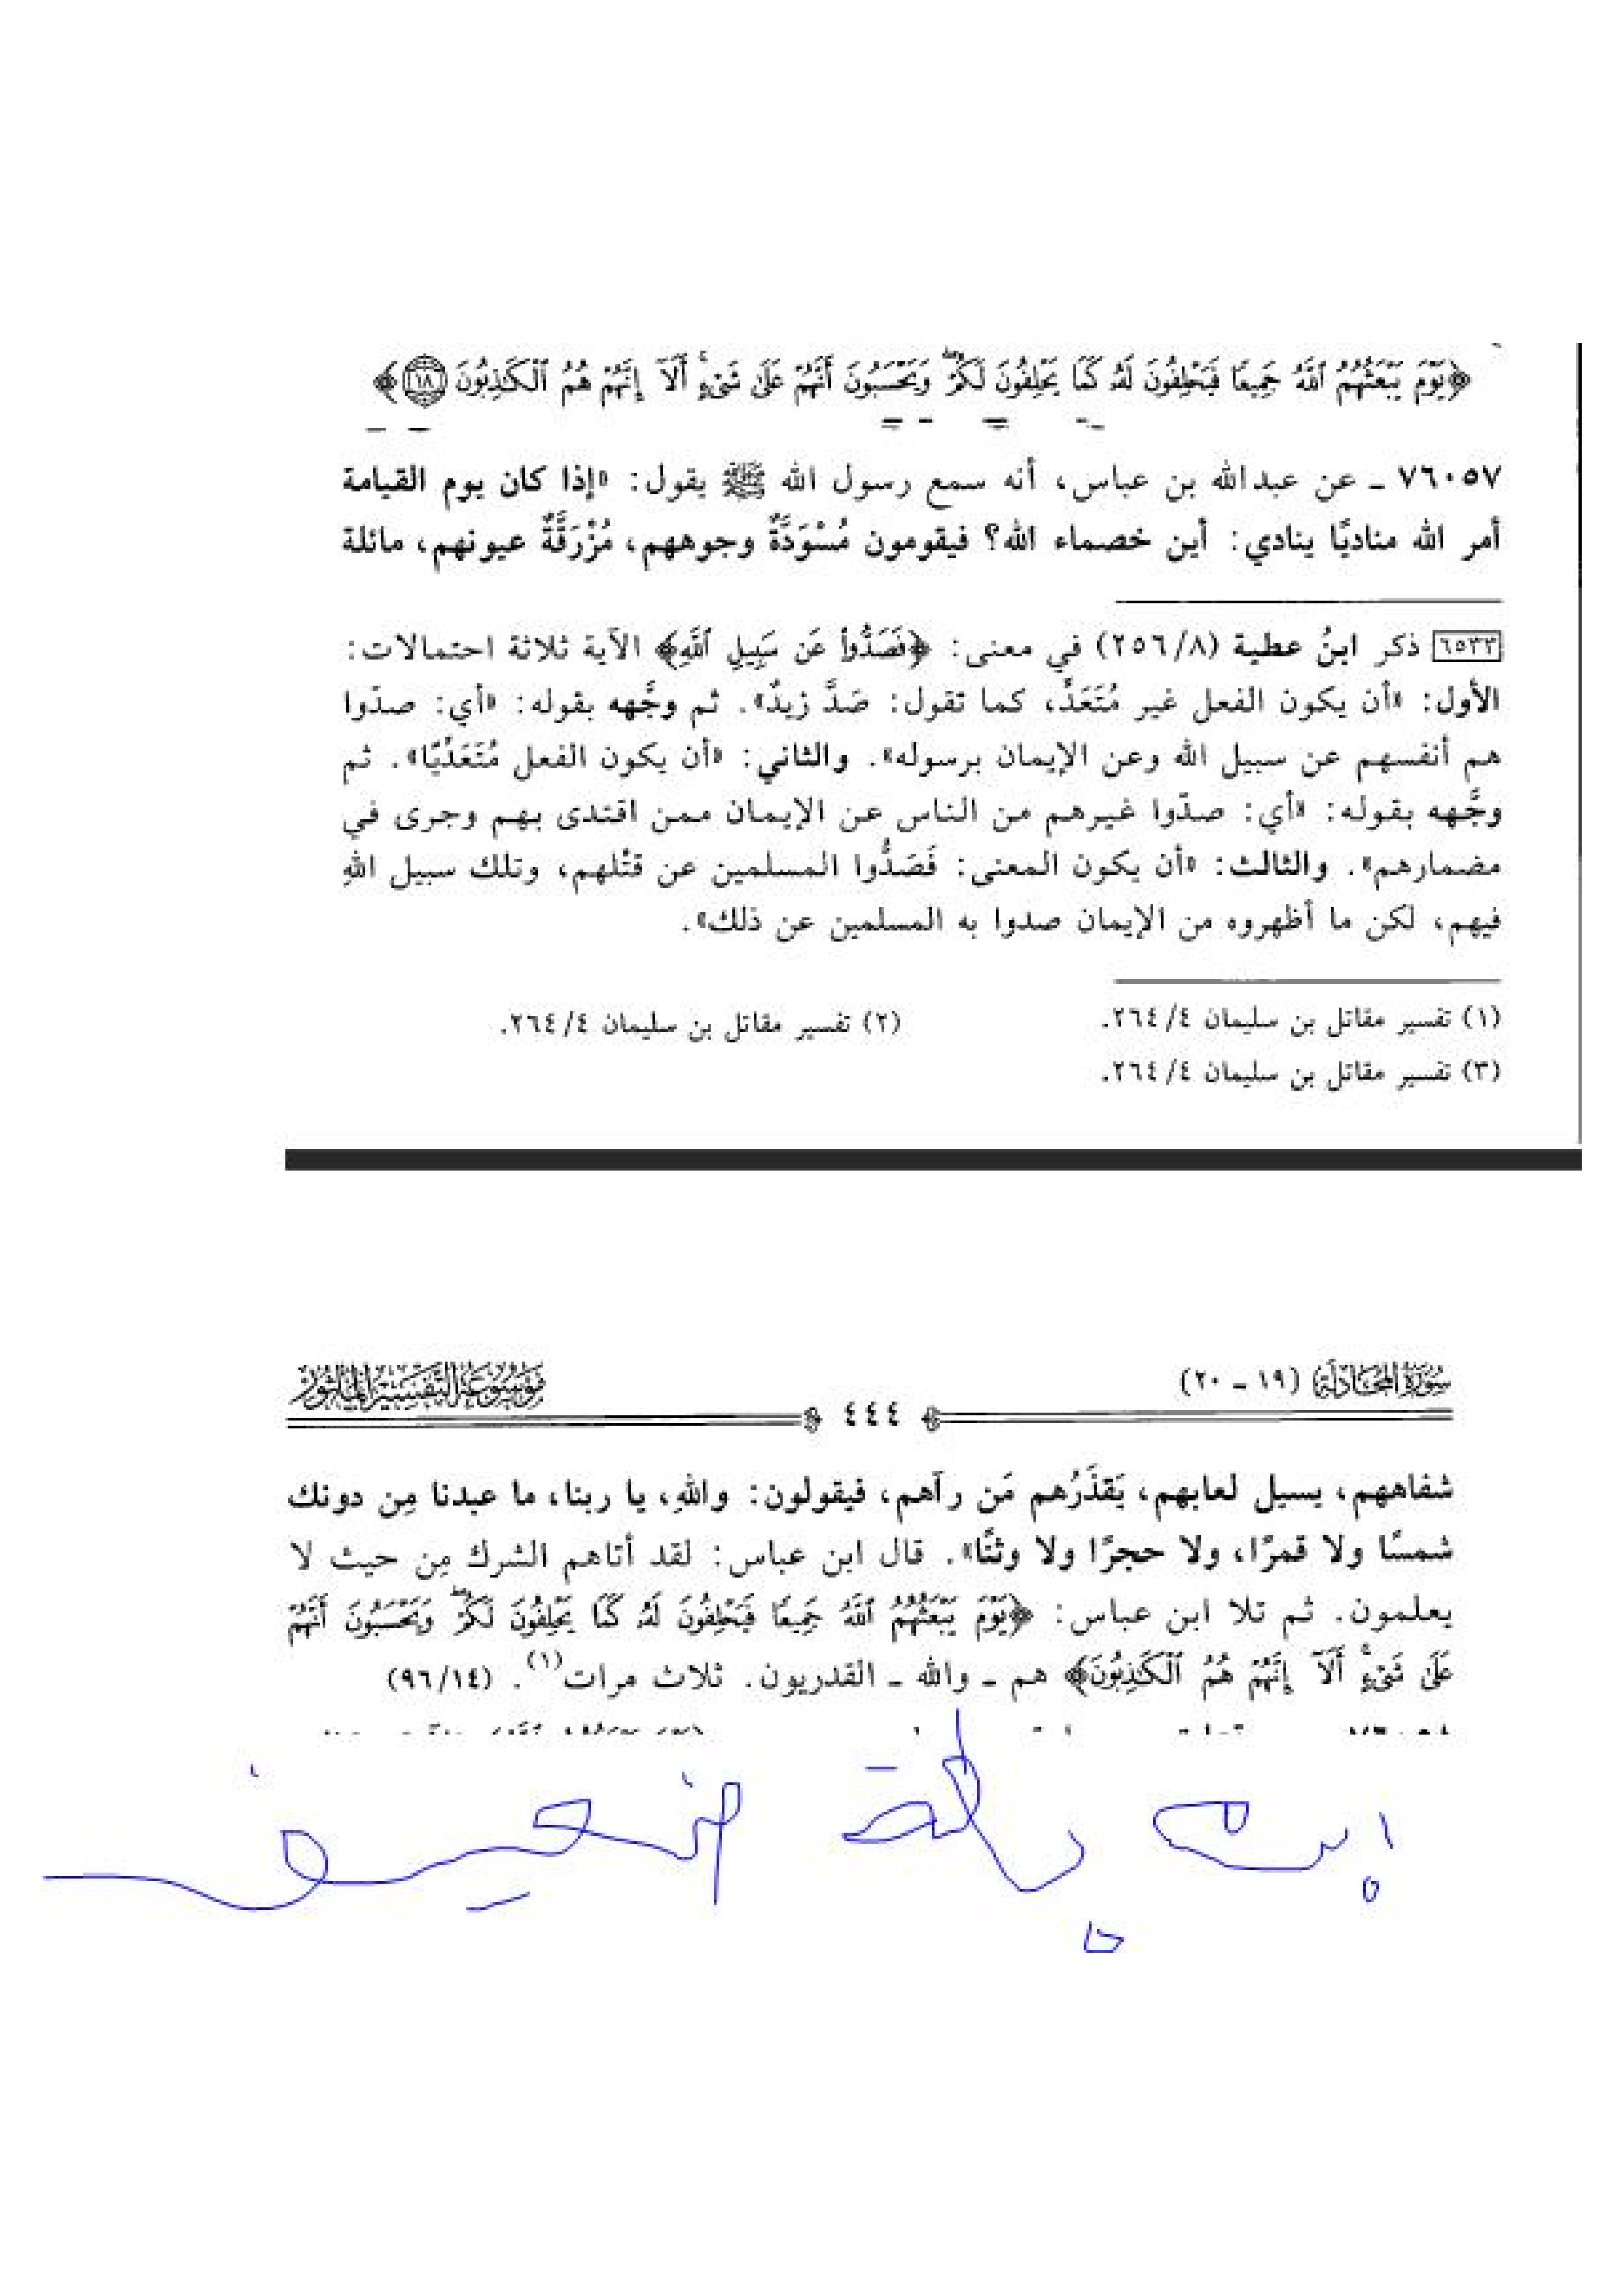 ﴿يَوْمَ يَبْعَثُهُمُ ٱللَّهُ جَمِيعًا فَيَحْلِفُونَ لَهُۥ كَمَا يَحْلِفُونَ لَكُمْ ۖ وَيَحْسَبُونَ أَنَّهُمْ عَلَىٰ شَىْءٍ ۚ أَلَآ إِنَّهُمْ هُمُ ٱلْكَٰذِبُونَ ١٨﴾
٧٦٠٥٧ ـ عن عبدالله بن عباس، أنه سمع رسول الله ﷺ يقول: «إذا كان يوم القيامة
أمر الله مناديًا ينادي: أين خصماء الله؟ فيقومون مُسْوَدَّةٌ وجوههم، مُزْرَقَّةٌ عيونهم، مائلة
٦٥٣٣ ذكر ابنُ عطية (٢٥٦/٨) في معنى: ﴿فَصَدُّوا۟ عَن سَبِيلِ ٱللَّهِ﴾ الآية ثلاثة احتمالات:
الأول: «أن يكون الفعل غير مُتَعَدٍّ، كما تقول: صَدَّ زيدٌ». ثم وجَّهه بقوله: «أي: صدّوا
هم أنفسهم عن سبيل الله وعن الإيمان برسوله». والثاني: «أن يكون الفعل مُتَعَدِّيًا». ثم
وجَّهه بقوله: «أي: صدّوا غيرهم من الناس عن الإيمان ممن اقتدى بهم وجرى في
مضمارهم». والثالث: «أن يكون المعنى: فَصَدُّوا المسلمين عن قتْلهم، وتلك سبيل اللهِ
فيهم، لكن ما أظهروه من الإيمان صدوا به المسلمين عن ذلك».
(١) تفسير مقاتل بن سليمان ٢٦٤/٤. (٢) تفسير مقاتل بن سليمان ٢٦٤/٤.
(٣) تفسير مقاتل بن سليمان ٢٦٤/٤.
سُورَةُ المُجَادلَة (١٩ ـ ٢٠) ٤٤٤ مَوْسُوعَة التَّفْسِيْر المَأثُور
شفاههم، يسيل لعابهم، يَقذَرُهم مَن رآهم، فيقولون: واللهِ، يا ربنا، ما عبدنا مِن دونك
شمسًا ولا قمرًا، ولا حجرًا ولا وثنًا». قال ابن عباس: لقد أتاهم الشرك مِن حيث لا
يعلمون. ثم تلا ابن عباس: ﴿يَوْمَ يَبْعَثُهُمُ ٱللَّهُ جَمِيعًا فَيَحْلِفُونَ لَهُۥ كَمَا يَحْلِفُونَ لَكُمْ ۖ وَيَحْسَبُونَ أَنَّهُمْ
عَلَىٰ شَىْءٍ ۚ أَلَآ إِنَّهُمْ هُمُ ٱلْكَٰذِبُونَ﴾ هم ـ والله ـ القدريون. ثلاث مرات(١). (٩٦/١٤)
ضعيف